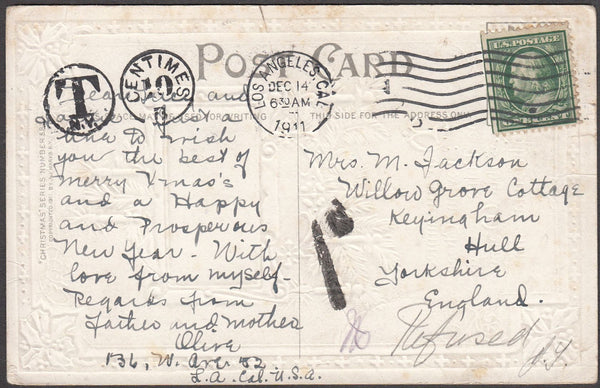 POST CARD
U.S. POSTAGE
T
N.Y.
CENTIMES
10
LOS ANGELES, CAL.
DEC 14
630AM
1911
THIS SIDE FOR THE ADDRESS
and
like to wish
you the best of
merry Xmas's
and a Happy
and Prosperous
New Year. With
love from myself
Regards from
Father and mother
Olive
136, W. Ave. 52
L.A. Cal. U.S.A.
Mrs. M. Jackson
Willow Grove Cottage
Keyingham
Hull
Yorkshire
England.
Refused
"CHRISTMAS" SERIES NUMBER